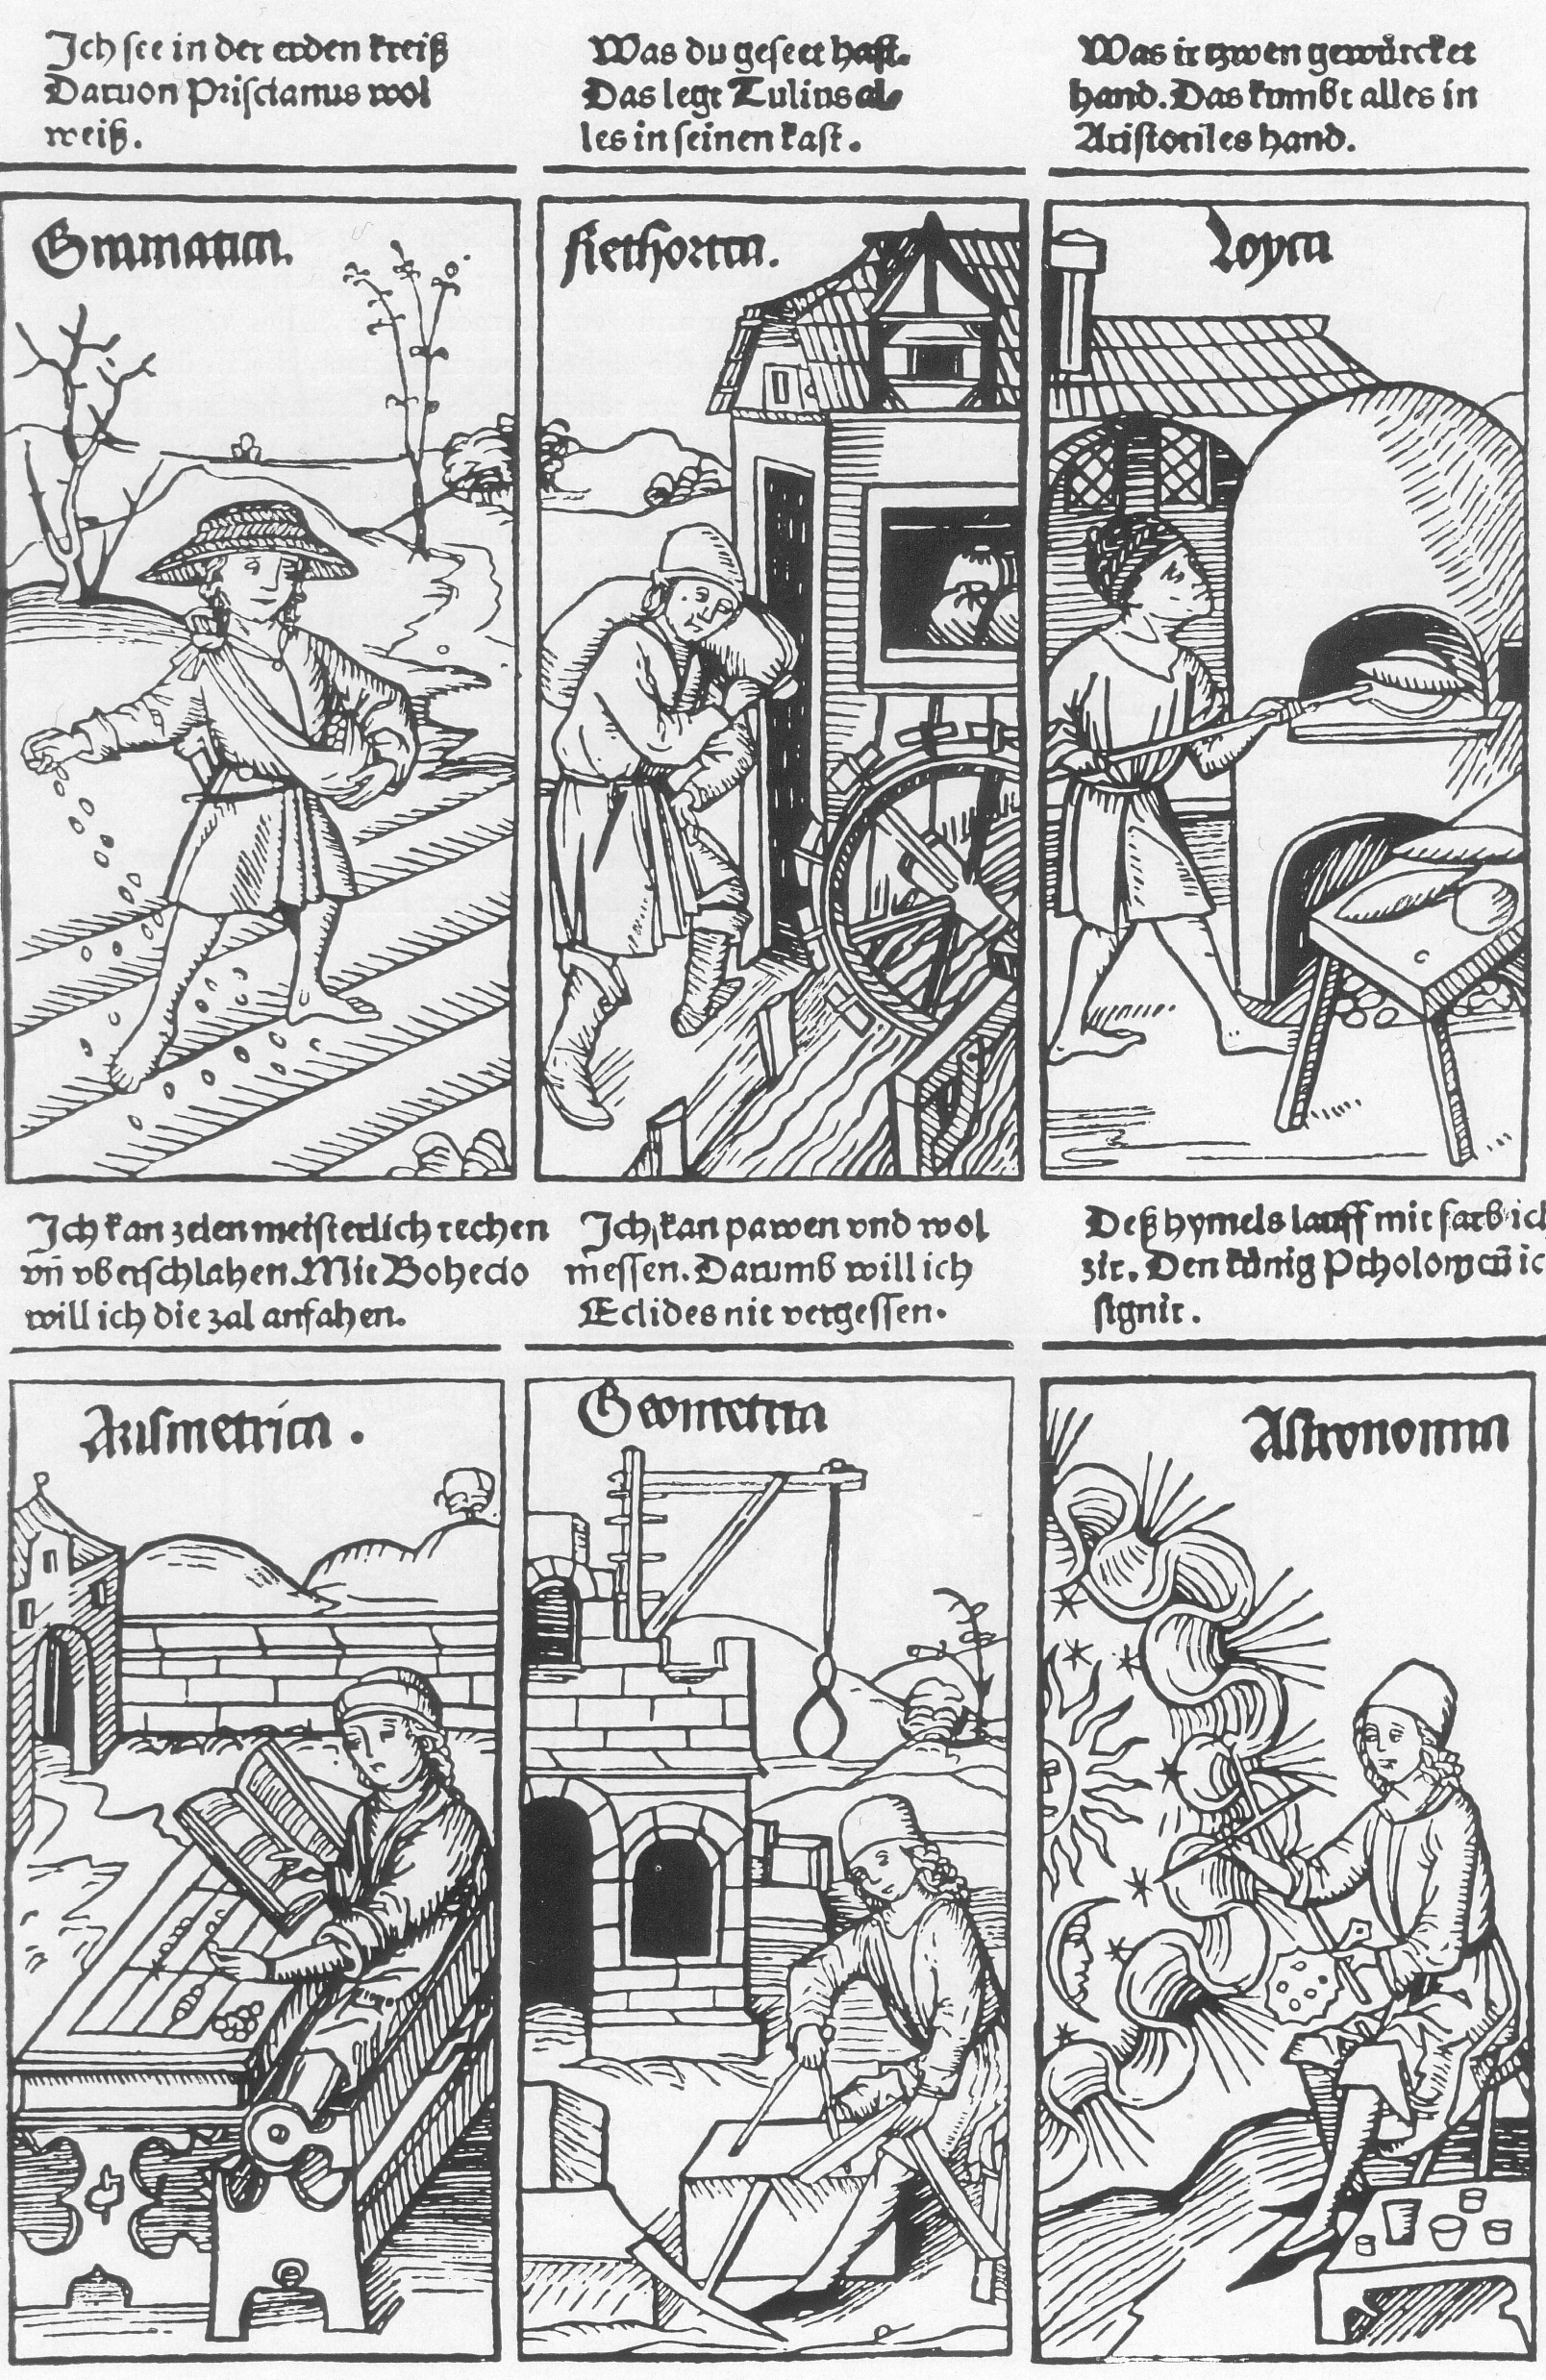 Ich see in der erden kreiß
Daruon Priscianus wol
weiß.
Was du geseet hast.
Das legt Tulius al-
les in seinen kast.
Was ir tzwen gewürcket
hand. Das kumbt alles in
Aristotiles hand.
Gramatica.
Rethorica.
Loyca
Ich kan zelen meisterlich rechen
vñ vberschlahen. Mit Bohecio
will ich die zal anfahen.
Ich kan pawen vnd wol
messen. Darumb will ich
Eclides nit vergessen.
Deß hymels lauff mit farb ich
zir. Den künig Ptholomeũ ic
signir.
Arismetrica.
Geometria
Astronomia